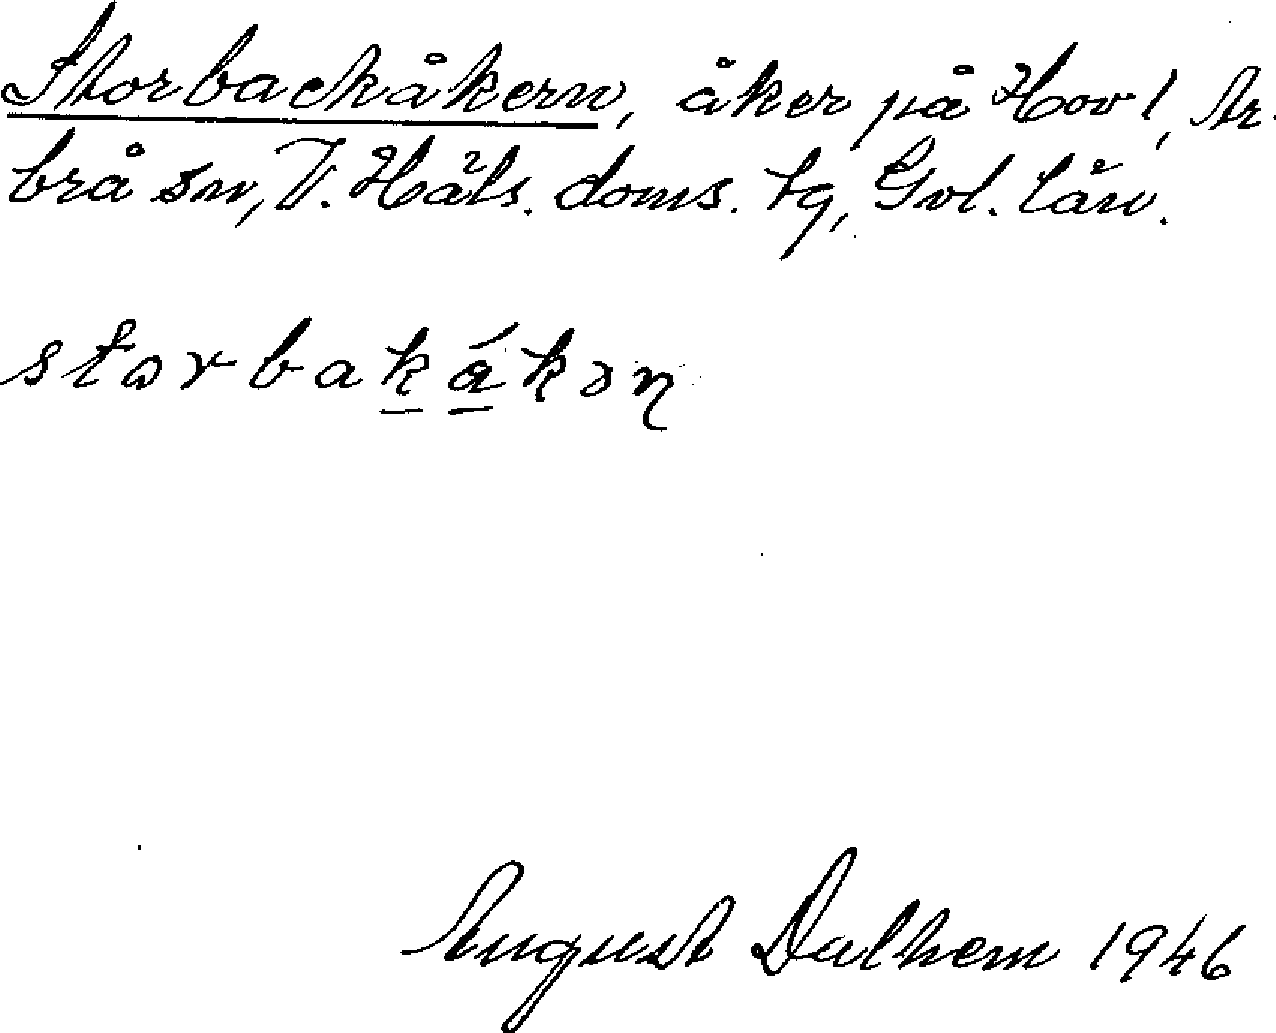 Storbackåkern, åker på Hov 1, Ar-
brå sn, V. Häls. doms. tg, Gvl. län.
storbakåkən
August Dalhem 1946